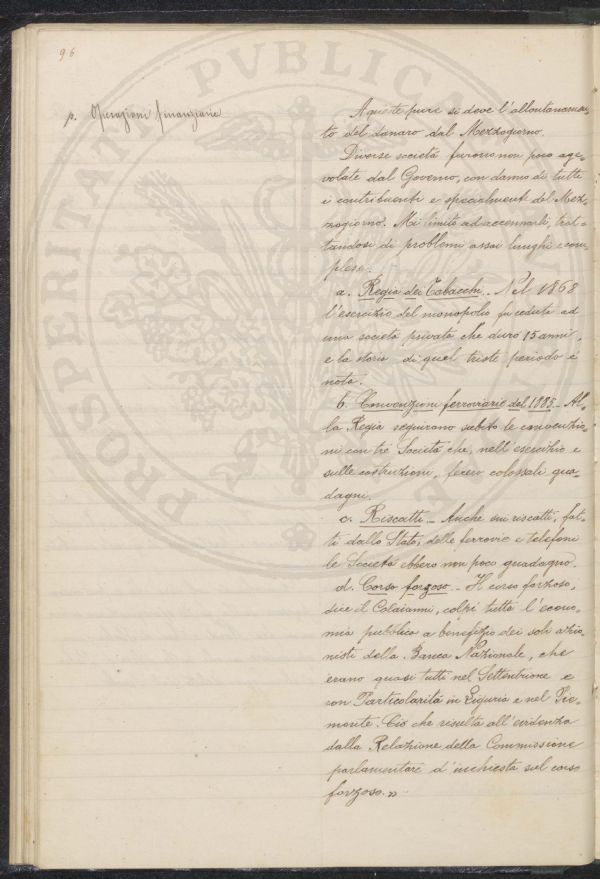 96
p. Operazioni finanziarie
A queste pure si deve l'allontanamen-
to del danaro dal Mezzogiorno.
Diverse società furono non poco age-
volate dal Governo, con danno di tutti
i contribuenti e specialmente del Mez-
zogiorno. Mi limito ad accennarli, trat-
tandosi di problemi assai lunghi e com-
plessi.
a. Regia dei Tabacchi. - Nel 1868
l'esercizio del monopolio fu ceduto ad
una società privata che durò 15 anni,
e la storia di quel triste periodo è
nota.
b. Convenzioni ferroviarie del 1885 - Al-
la Regia seguirono subito le convenzio-
ni con tre Società che, nell'esercizio e
sulle costruzioni, fecero colossali gua-
dagni.
c. Riscatti - Anche sui riscatti, fat-
ti dallo Stato, delle ferrovie e telefoni
le Società ebbero non poco guadagno.
d. Corso forzoso. - Il corso forzoso,
dice il Colaianni, colpì tutta l'econo-
mia pubblica a benefizio dei soli azio-
nisti della Banca Nazionale, che
erano quasi tutti nel Settentrione e
con Particolarità in Liguria e nel Pie-
monte. Ciò che risulta all'evidenza
dalla Relazione della Commissione
parlamentare d'inchiesta sul corso
forzoso.»
PROSPERITATI PVBLICAE